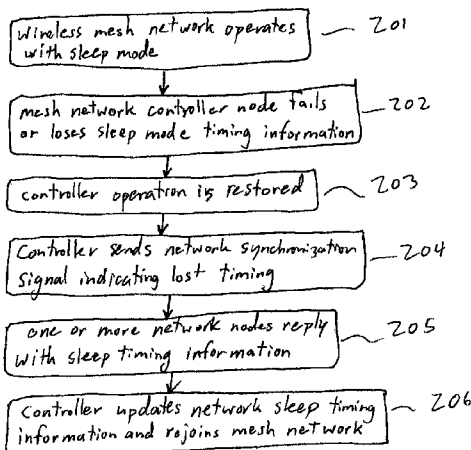 Wireless mesh network operates
with sleep mode
201
mesh network controller node fails
or loses sleep mode timing information
202
controller operation is restored
203
Controller sends network synchronization
signal indicating lost timing
204
one or more network nodes reply
with sleep timing information
205
Controller updates network sleep timing
information and rejoins mesh network
206